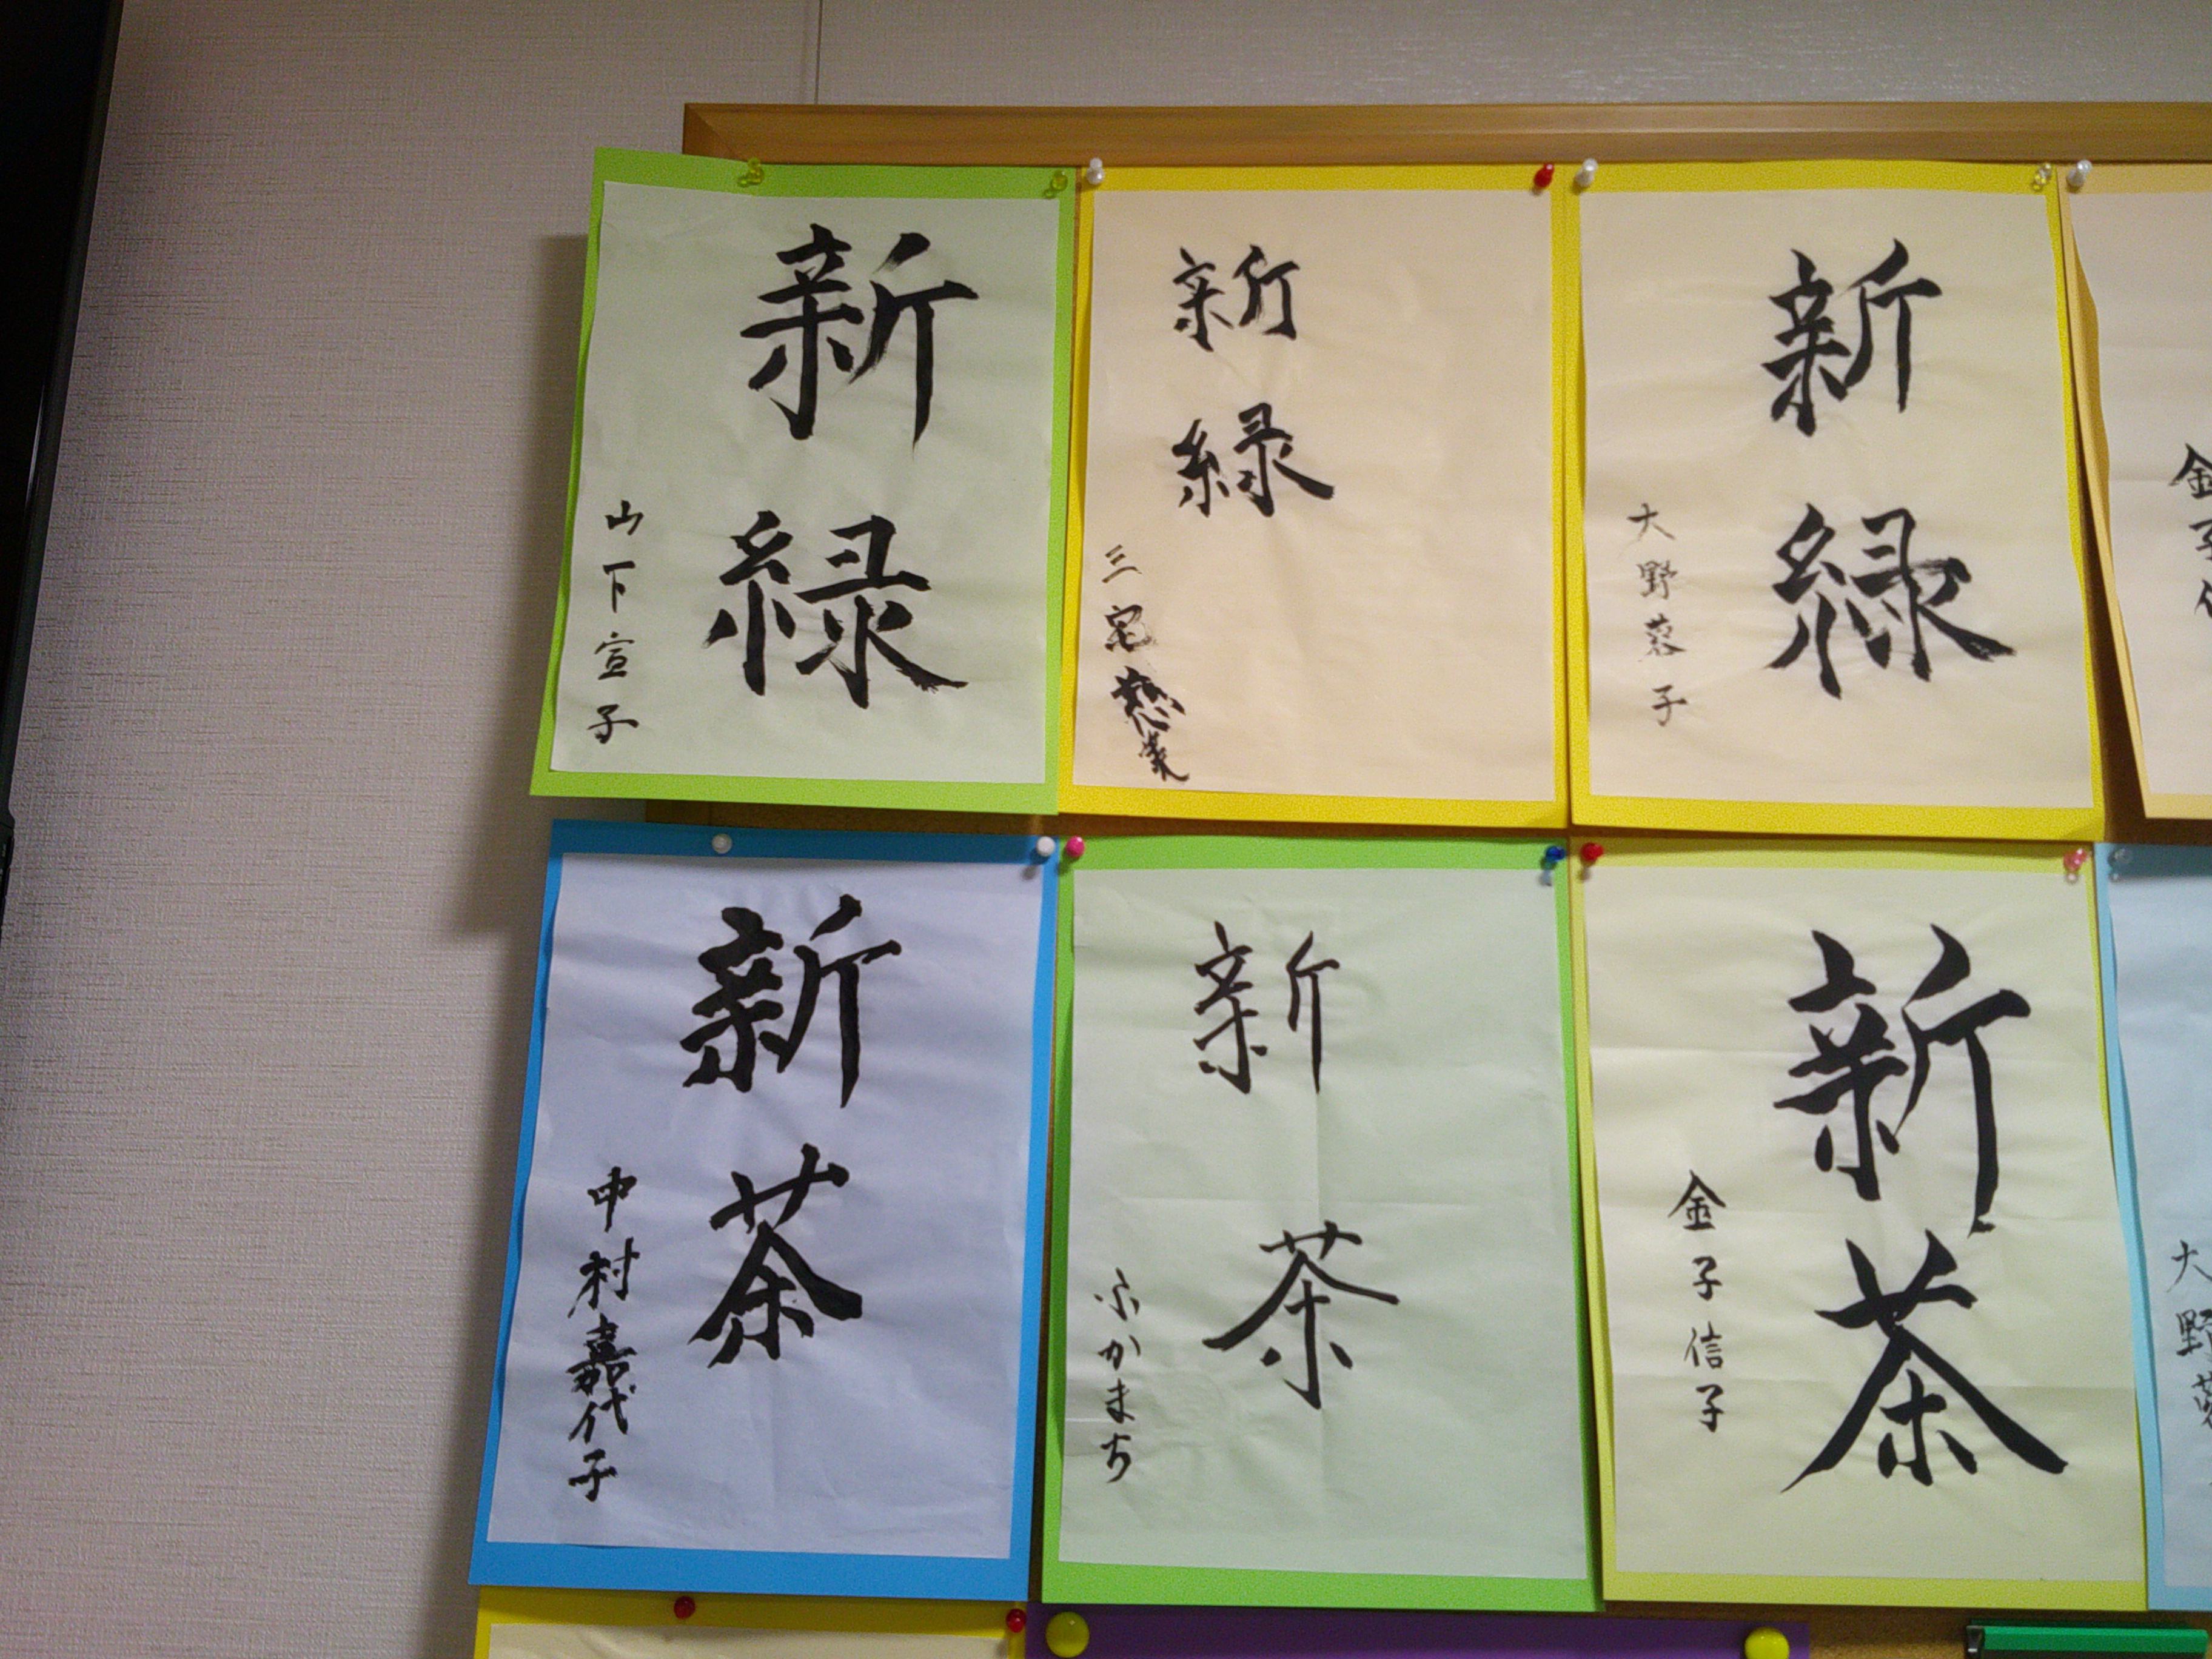 新緑
山下宣子
新緑
三宅
新緑
大野蓉子
金子信
新茶
中村嘉代子
新茶
ふかまち
新茶
金子信子
大野蓉